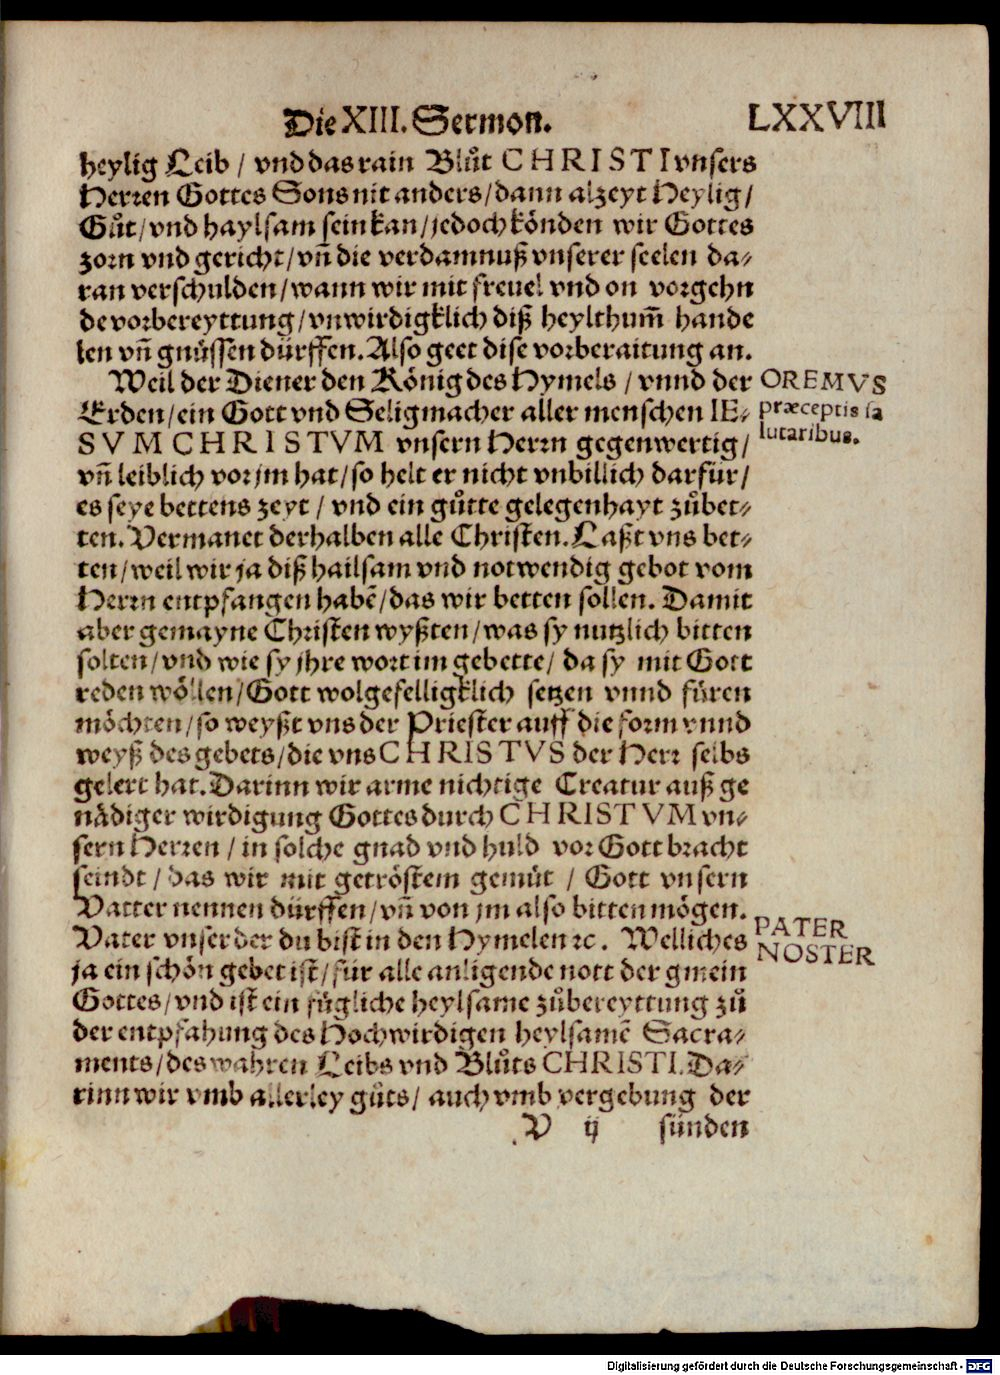 Die XIII. Sermon.
LXXVIII
heylig Leib / vnd das rain Blůt CHRISTI vnsers
Herren Gottes Sons nit anders / dann alzeyt Heylig /
Gůt / vnd haylsam sein kan / jedoch könden wir Gottes
zorn vnd gericht / vñ die verdamnuß vnserer seelen da-
ran verschulden / wann wir mit freuel vnd on vorgehn
de vorbereyttung / vnwirdigklich diß heylthum̃ hande
len vñ gnüssen dürffen. Also geet dise vorberaitung an.
Weil der Diener den König des Hymels / vnnd der
OREMVS
Erden / ein Gott vnd Seligmacher aller menschen IE-
præceptis sa
SVM CHRISTVM vnsern Herrn gegenwertig /
lutaribus.
vñ leiblich vor jm hat / so helt er nicht vnbillich darfür /
es seye bettens zeyt / vnd ein gůtte gelegenhayt zůbet-
ten. Vermanet derhalben alle Christen. Laßt vns bet-
ten / weil wir ja diß hailsam vnd notwendig gebot vom
Herrn entpfangen habẽ / das wir betten sollen. Damit
aber gemayne Christen wyßten / was sy nutzlich bitten
solten / vnd wie sy jhre wort im gebette / da sy mit Gott
reden wöllen / Gott wolgefelligklich setzen vnnd füren
möchten / so weyßt vns der Priester auff die form vnnd
weyß des gebets / die vns CHRISTVS der Herr selbs
gelert hat. Darinn wir arme nichtige Creatur auß ge
nädiger wirdigung Gottes durch CHRISTVM vn-
sern Herren / in solche gnad vnd huld vor Gott bracht
seindt / das wir mit getröstem gemüt / Gott vnsern
Vatter nennen dürffen / vñ von jm also bitten mögen.
Vater vnser der du bist in den Hymelen ꝛc. Welliches
PATER
ja ein schön gebet ist / für alle anligende nott der gmein
NOSTER
Gottes / vnd ist ein fügliche heylsame zůbereyttung zů
der entpfahung des Hochwirdigen heylsamẽ Sacra-
ments / des wahren Leibs vnd Blůts CHRISTI. Da-
rinn wir vmb allerley gůts / auch vmb vergebung der
V ij sünden
Digitalisierung gefördert durch die Deutsche Forschungsgemeinschaft - DFG